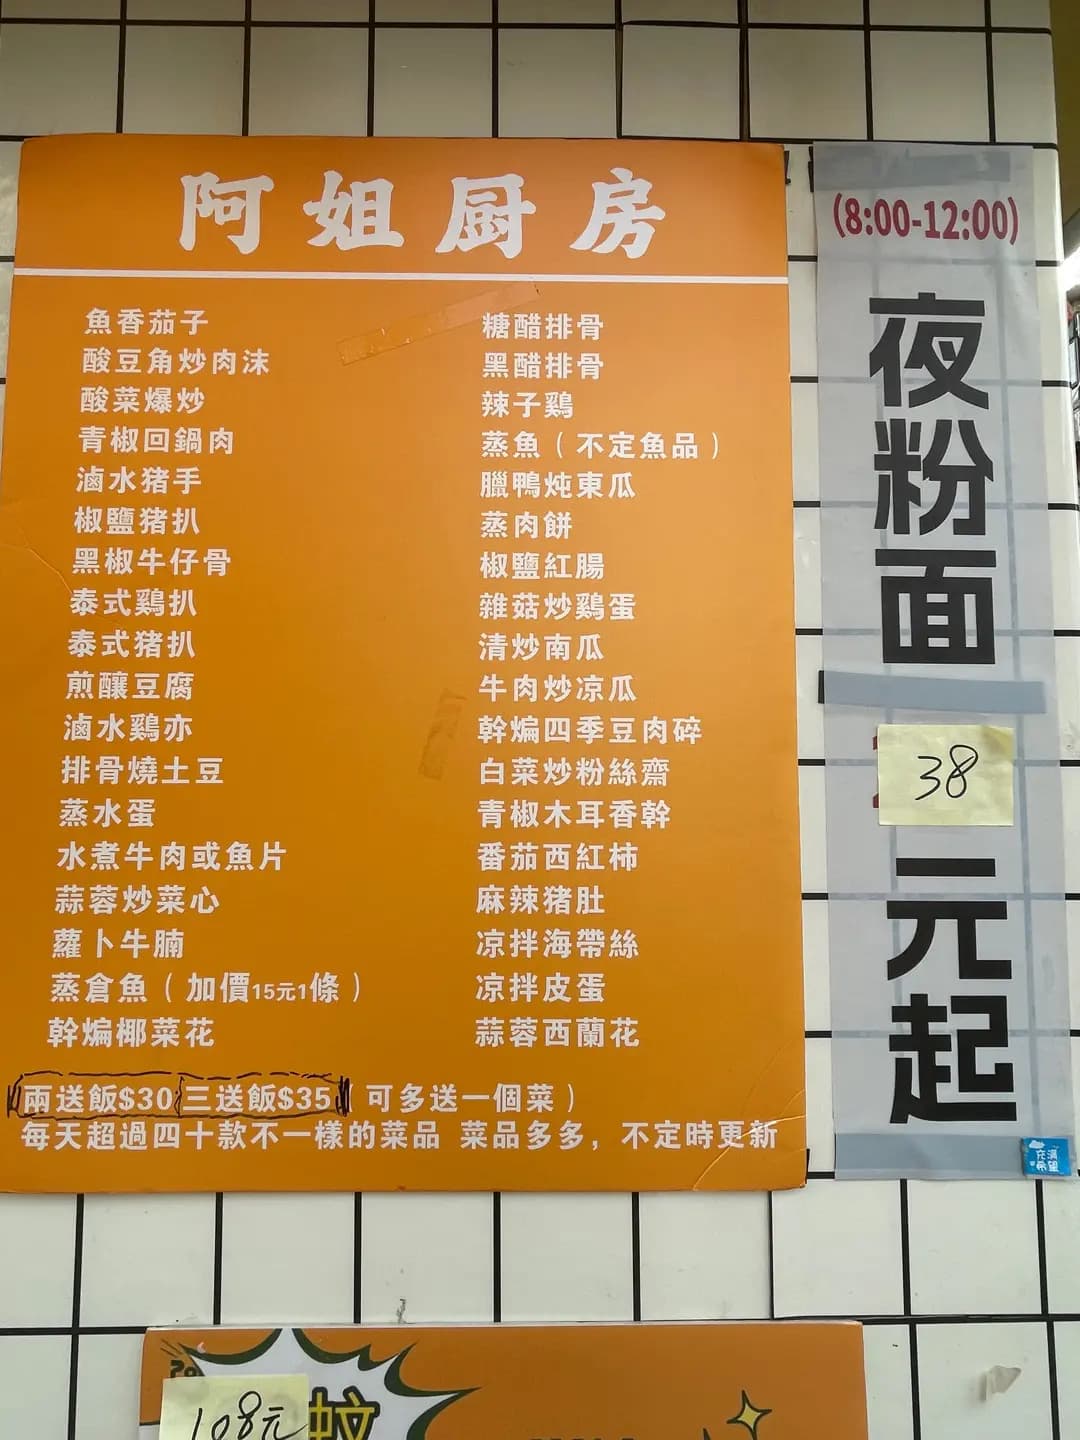 阿姐厨房
魚香茄子
酸豆角炒肉沫
酸菜爆炒
青椒回鍋肉
滷水猪手
椒鹽猪扒
黑椒牛仔骨
泰式鷄扒
泰式猪扒
煎釀豆腐
滷水鷄亦
排骨燒土豆
蒸水蛋
水煮牛肉或魚片
蒜蓉炒菜心
蘿卜牛腩
蒸倉魚（加價15元1條）
幹煸椰菜花
糖醋排骨
黑醋排骨
辣子鷄
蒸魚（不定魚品）
臘鴨炖東瓜
蒸肉餅
椒鹽紅腸
雜菇炒鷄蛋
清炒南瓜
牛肉炒凉瓜
幹煸四季豆肉碎
白菜炒粉絲齋
青椒木耳香幹
番茄西紅柿
麻辣猪肚
凉拌海帶絲
凉拌皮蛋
蒜蓉西蘭花
兩送飯$30 三送飯$35（可多送一個菜）
每天超過四十款不一樣的菜品 菜品多多，不定時更新
(8:00-12:00)
夜粉面
38
元起
充满
希望
108元
蚊